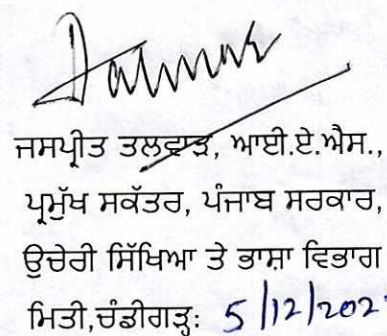 ਜਸਪ੍ਰੀਤ ਤਲਵਾੜ, ਆਈ.ਏ.ਐਸ.,
ਪ੍ਰਮੁੱਖ ਸਕੱਤਰ, ਪੰਜਾਬ ਸਰਕਾਰ,
ਉਚੇਰੀ ਸਿੱਖਿਆ ਤੇ ਭਾਸ਼ਾ ਵਿਭਾਗ
ਮਿਤੀ,ਚੰਡੀਗੜ੍ਹ: 5/12/202